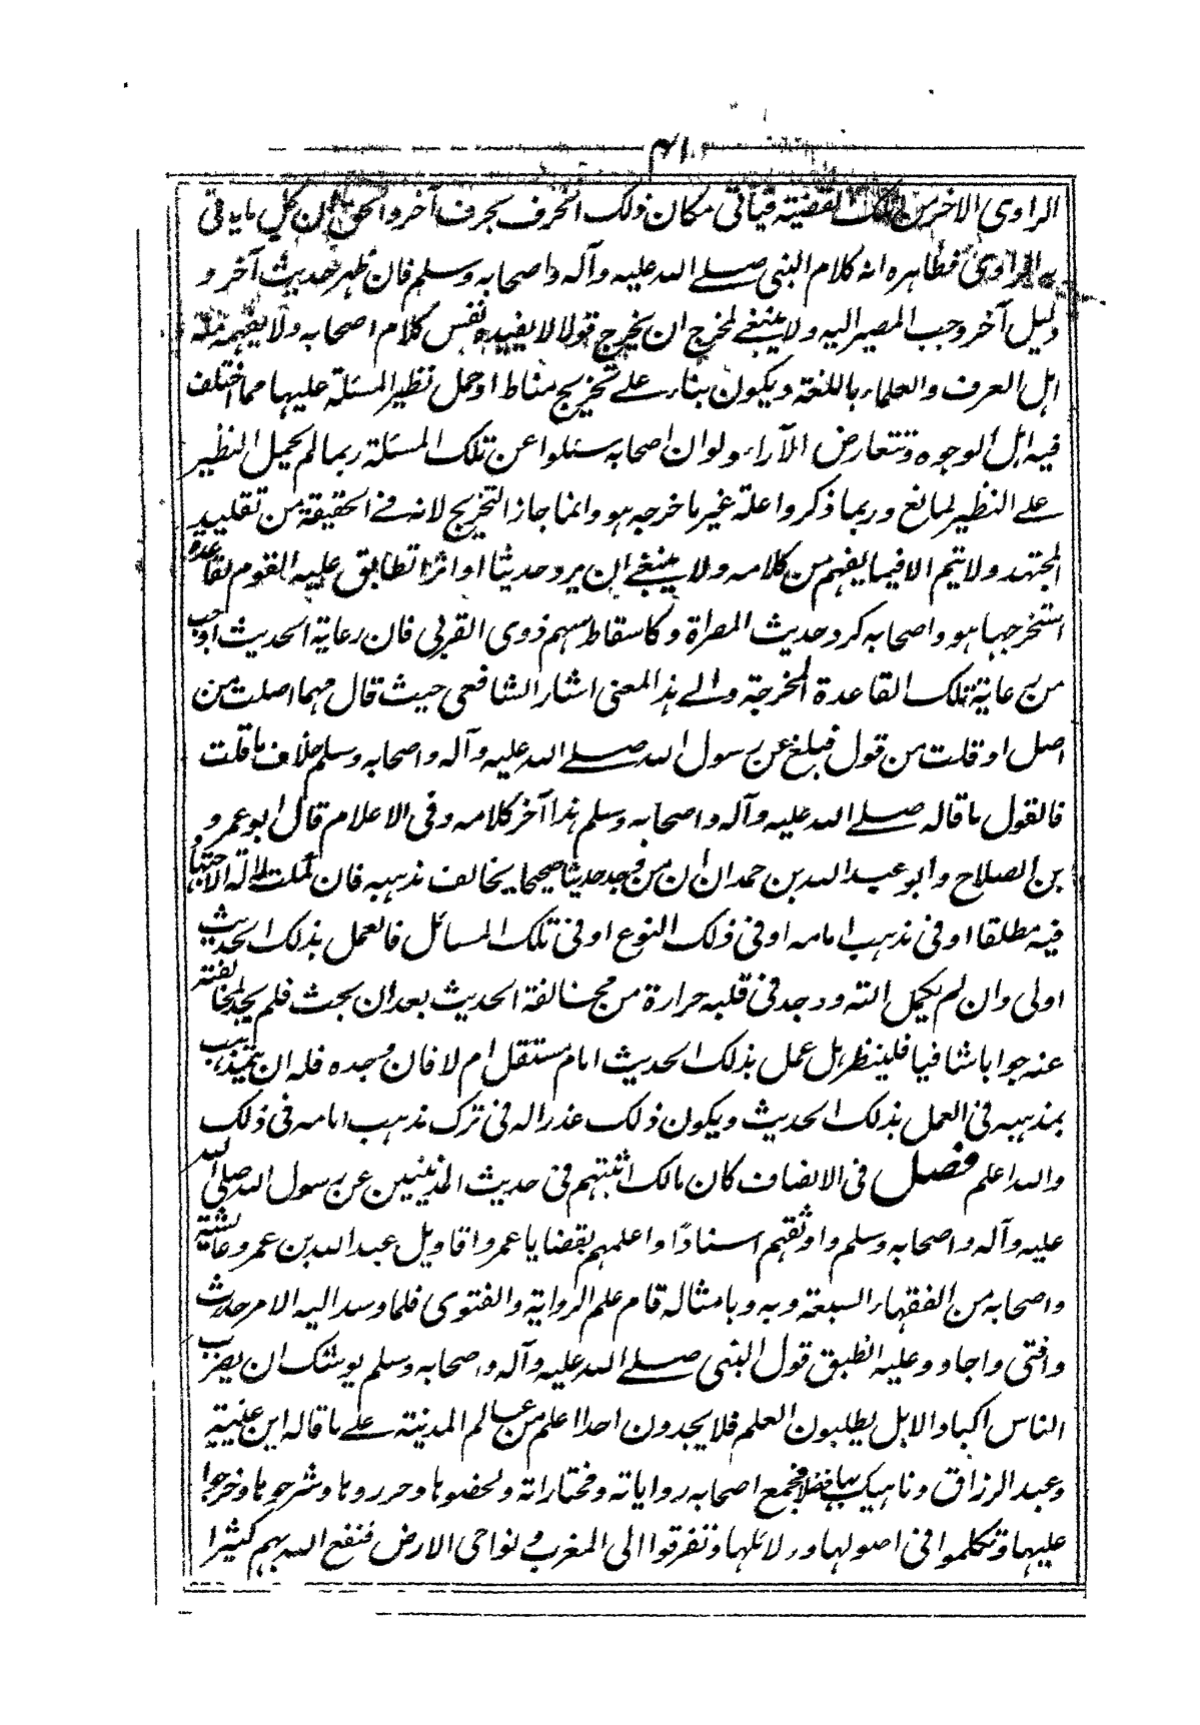 الراوى الاخر تلك القضية فيأتى مكان ذلك الحرف بحرف آخر والحق ان كل ما ياتى
به الراوى فظاهره انه كلام النبى صلے الله عليه وآله واصحابه وسلم فان ظهر حديث آخر و
دليل آخر وجب المصير اليه ولا ينبغے لمخرج ان يخرج قولا لا يفيده نفس كلام اصحابه ولا يفهمه منه
اهل العرف والعلماء باللغة ويكون بناء علے تخريج مناط او حمل نظير المسئلة عليها مما اختلف
فيه اهل الوجوه وتتعارض الآراء ولو ان اصحابه سئلوا عن تلك المسئلة ربما لم يحمل النظير
علے النظير لمانع وربما ذكروا علة غير ما خرجه هو وانما جاز التخريج لانه فے الحقيقة من تقليد
المجتهد ولا يتم الا فيما يفهم من كلامه ولا ينبغے ان يرد حديثا او اثرا تطابق عليه القوم لقاعدة
استخرجها هو واصحابه كرد حديث المصراة وكاسقاط سهم ذوى القربى فان رعاية الحديث اوجب
من رعاية تلك القاعدة المخرجة والے هذا المعنى اشار الشافعى حيث قال مهما اصلت من
اصل او قلت من قول فبلغ عن رسول الله صلے الله عليه وآله واصحابه وسلم خلاف ما قلت
فالقول ما قاله صلے الله عليه وآله واصحابه وسلم هذا آخر كلامه وفى الاعلام قال ابو عمرو
بن الصلاح وابو عبد الله بن حمدان ان من وجد حديثا صحيحا يخالف مذهبه فان كملت له آلة الاجتهاد
فيه مطلقا او فى مذهب امامه او فى ذلك النوع او فى تلك المسائل فالعمل بذلك الحديث
اولى وان لم يكمل آلته ووجد فى قلبه حرارة من مخالفة الحديث بعد ان بحث فلم يجد لمخالفته
عنه جوابا شافيا فلينظر هل عمل بذلك الحديث امام مستقل ام لا فان وجده فله ان يتمذهب
بمذهبه فى العمل بذلك الحديث ويكون ذلك عذرا له فى ترك مذهب امامه فى ذلك
والله اعلم فصل فى الانصاف كان مالك اثبتهم فى حديث المدنيين عن رسول الله صلى الله
عليه وآله واصحابه وسلم واوثقهم اسنادًا واعلمهم بقضايا عمر واقاويل عبد الله بن عمر وعائشة
واصحابه من الفقهاء السبعة وبه وبامثاله قام علم الرواية والفتوى فلما وسد اليه الامر حدث
وافتى واجاد وعليه انطبق قول النبى صلے الله عليه وآله واصحابه وسلم يوشك ان يضرب
الناس اكباد الابل يطلبون العلم فلا يجدون احدا اعلم من عالم المدينة علے ما قاله ابن عيينة
وعبد الرزاق وناهيك بهما فضلا فجمع اصحابه رواياته ومختاراته ولخصوها وحرروها وشرحوها وخرجوا
عليها وتكلموا فى اصولها ودلائلها وتفرقوا الى المغرب ونواحى الارض فنفع الله بهم كثيرا